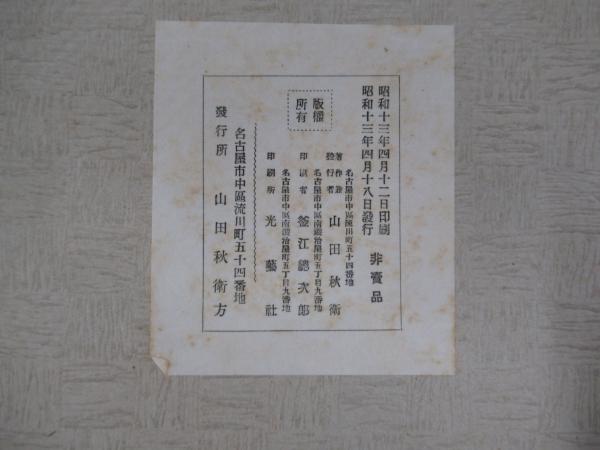 昭和十三年四月十二日印刷
昭和十三年四月十八日發行
非賣品
版權
所有
名古屋市中區流川町五十四番地
著作兼
發行者 山田秋衛
名古屋市中區南鍛治屋町五丁目九番地
印刷者 釜江總次郎
名古屋市中區南鍛治屋町五丁目九番地
印刷所 光藝社
名古屋市中區流川町五十四番地
發行所 山田秋衛方